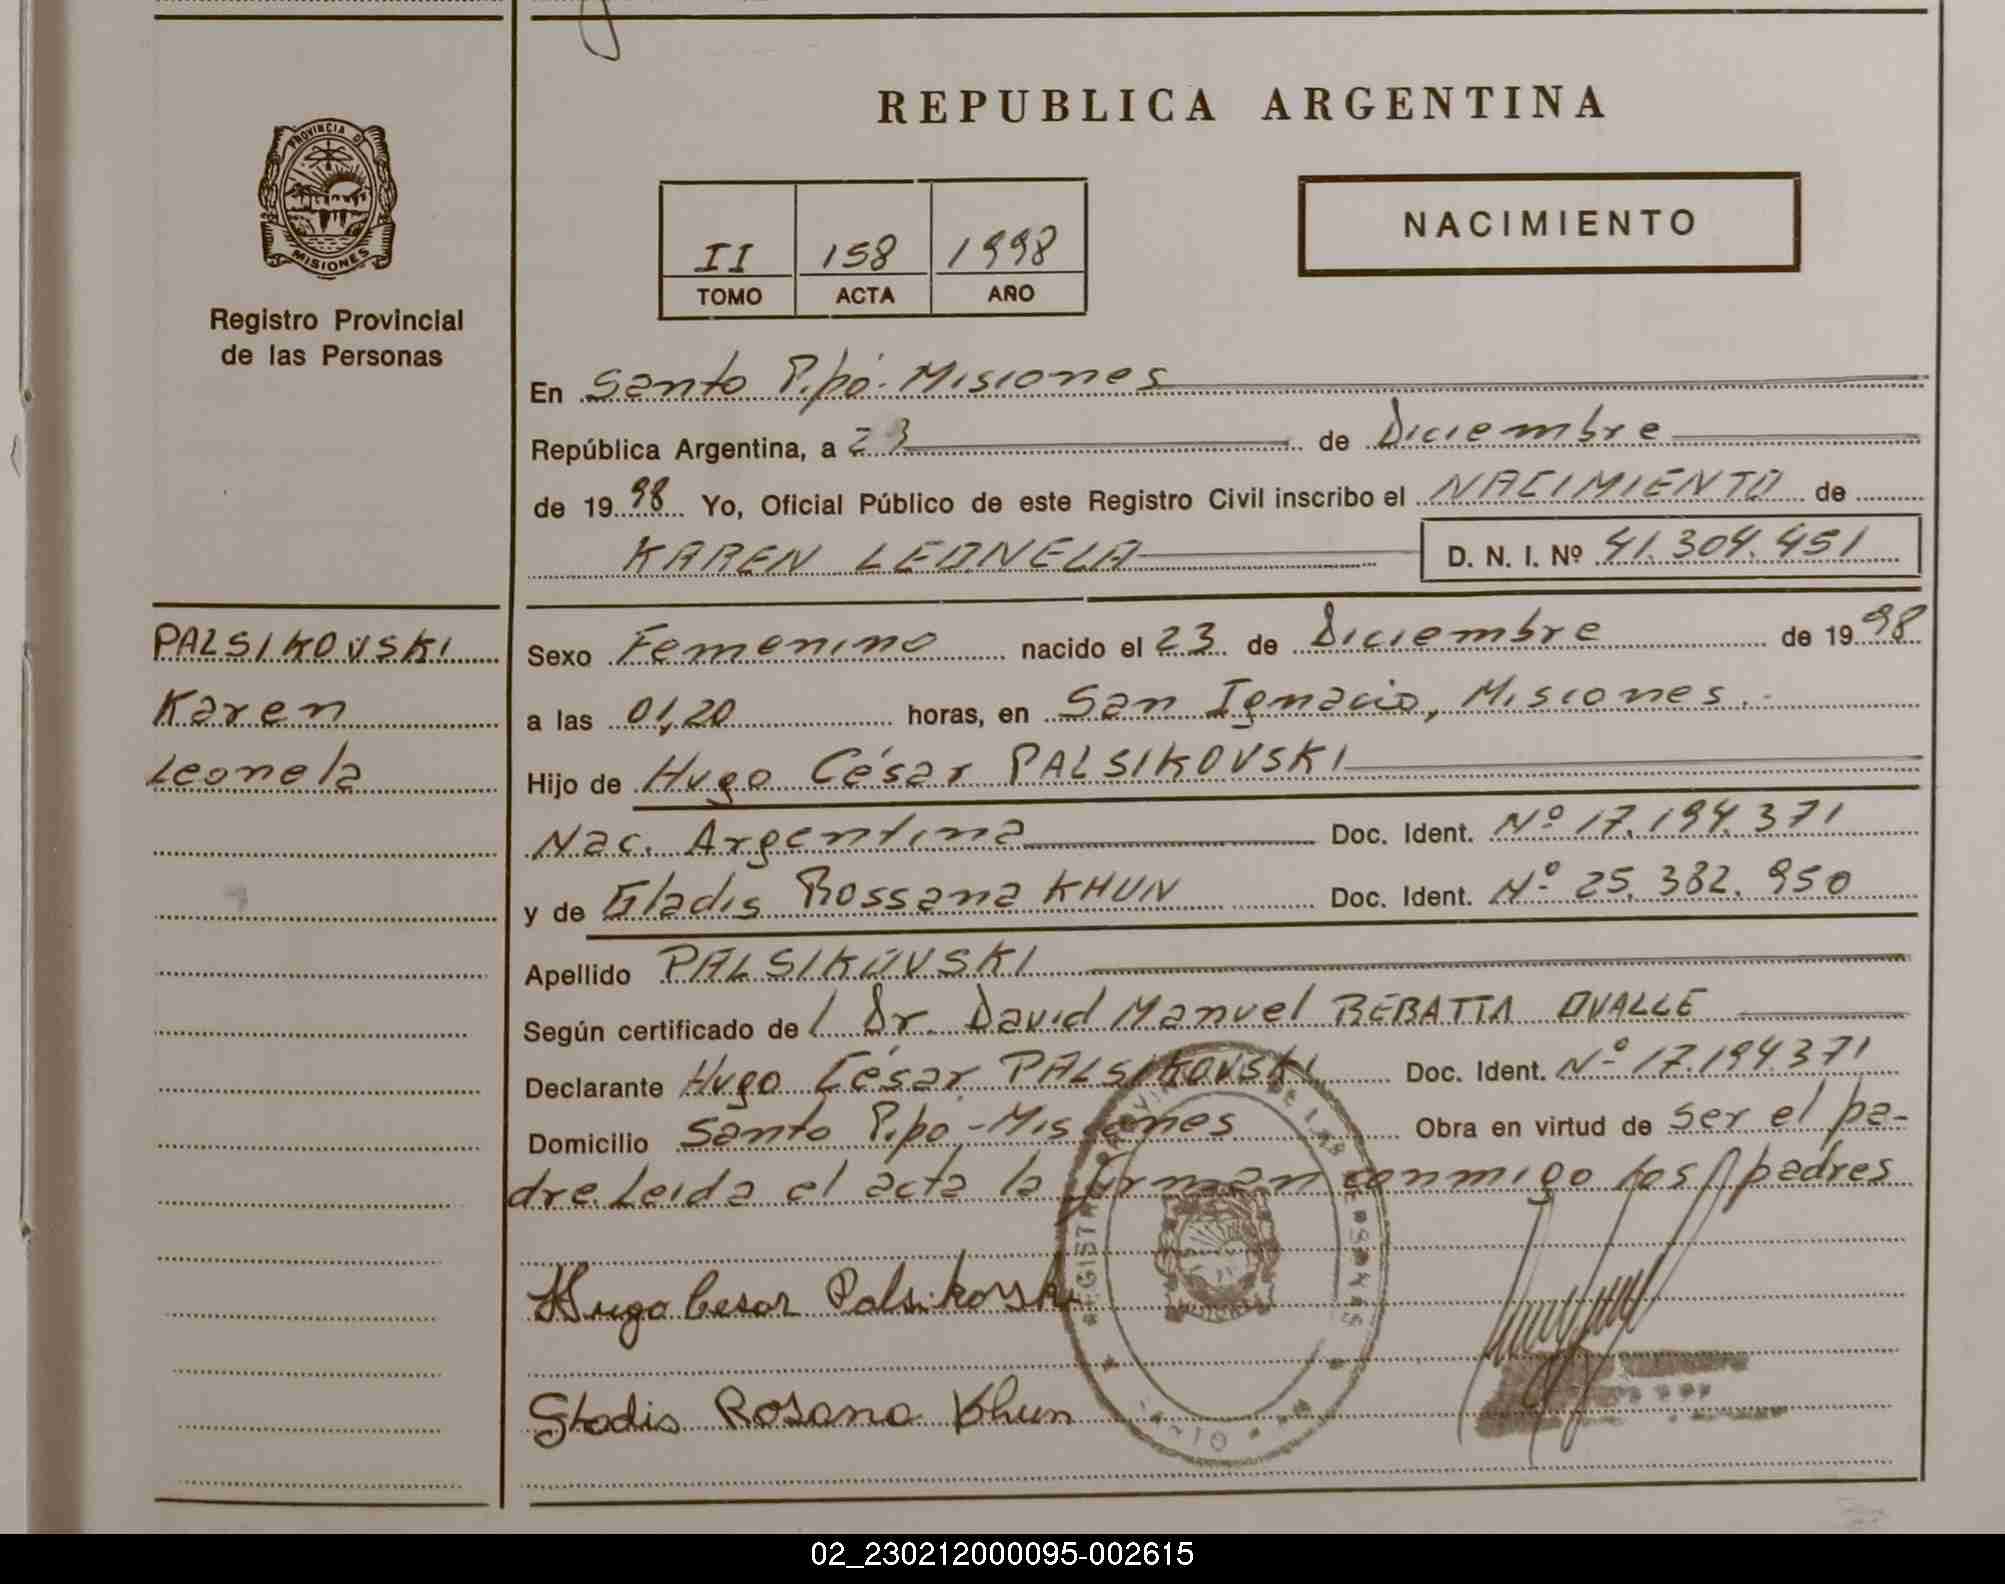 REPUBLICA ARGENTINA
PROVINCIA D
MISIONES
NACIMIENTO
II 158 1998
TOMO ACTA AÑO
Registro Provincial
de las Personas
En Santo Pipó. Misiones
República Argentina, a 23 de Diciembre
de 1998 Yo, Oficial Público de este Registro Civil inscribo el NACIMIENTO de
KAREN LEONELA D. N. I. Nº 41.304.451
PALSIKOVSKI
Karen
Leonela
Sexo Femenino nacido el 23 de Diciembre de 1998
a las 01,20 horas, en San Ignacio, Misiones.-
Hijo de Hugo César PALSIKOVSKI
Nac. Argentina Doc. Ident. Nº 17.194.371
y de Gladis Rossana KHUN Doc. Ident. Nº 25.382.950
Apellido PALSIKOVSKI
Según certificado de l Dr. David Manuel REBATTA OVALLE
Declarante Hugo César PALSIKOVSKI Doc. Ident. Nº 17.194.371
Domicilio Santo Pipó-Misiones Obra en virtud de ser el pa-
dre. Leida el acta la firman conmigo los padres
Hugo Cesar Palsikovski
Gladis Rosana Khun
02_230212000095-002615